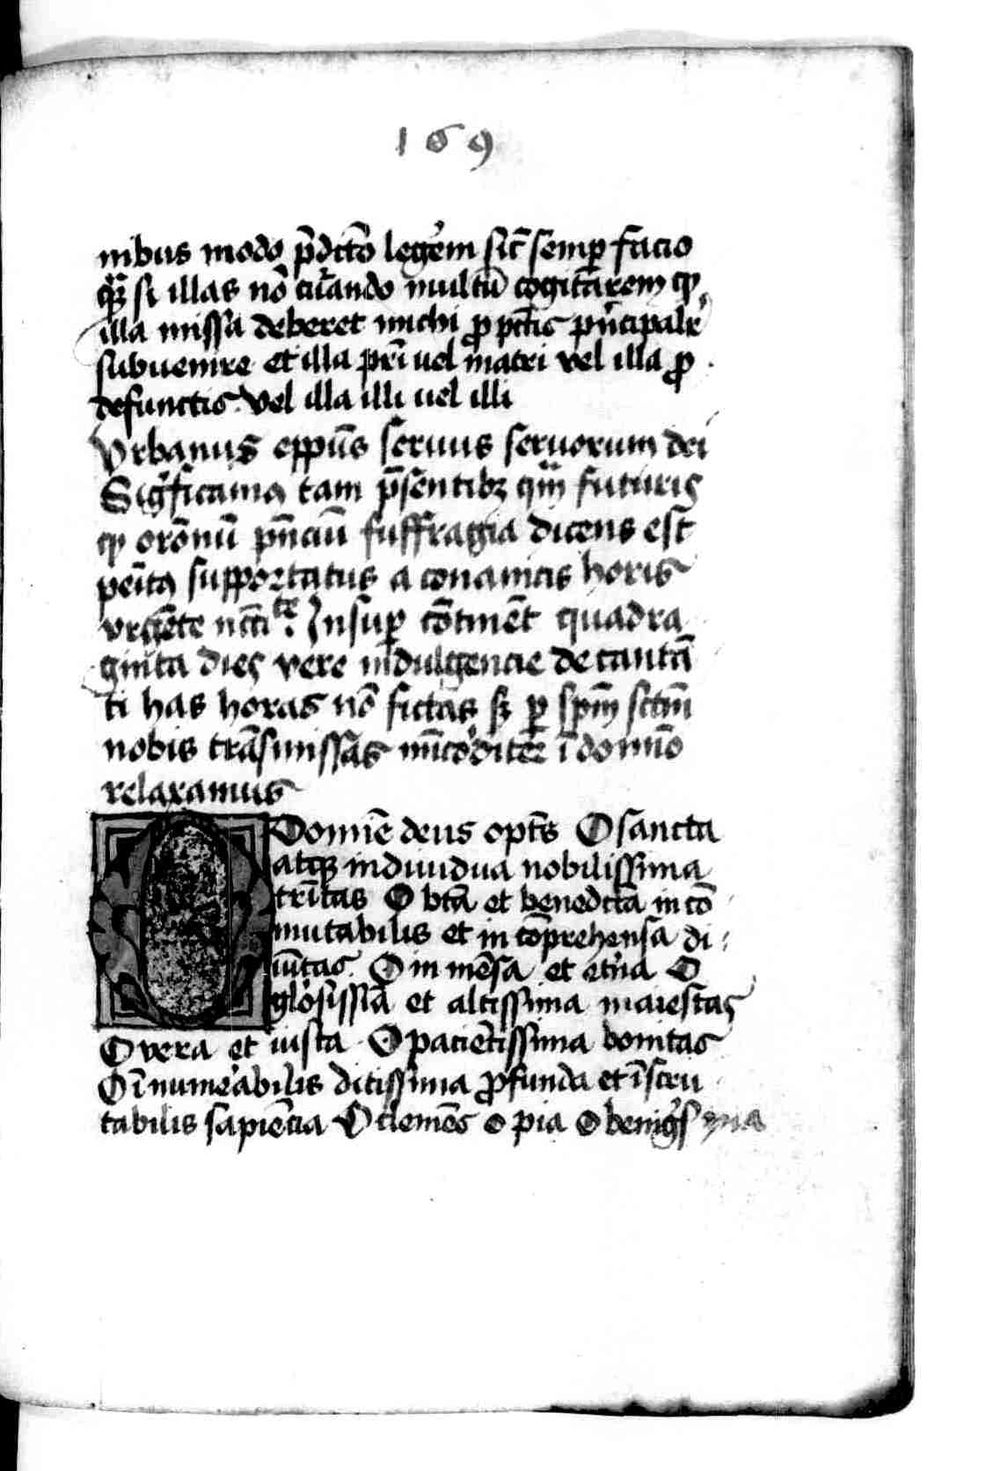 169
nibus modo p̄dictō legēm sic̄ semp̲ facio
si illas nō cūando multū cogitārem ꝙ
illa missa deberet michi ꝓ pct̄is p̄ncipalr̄
subuenire et illa pr̄i uel matri vel illa ꝓ
defunctis. vel illa illi uel illi
Vrbanus epp̄us seruus seruorum dei
Sigficamꝰ tam p̄sentibꝫ qm̄ futuris
ꝙ orōnū pn̄ciū suffragia dicens est
supportatus a conamicis horis
vrgēte Insup̲ cōtinēt quadra
ginta dies vere indulgencie de cantā
ti has horas nō fictas sꝫ ꝑ spm̄ sctm̄
nobis trāsmissas mīcōditer ī domīo
relaxamus
O Domīe deus opt̄s O sancta
atqꝫ indiuidua nobilissima
trīitas O btā et benedctā in cō
mutabilis et in cōprehensa di
iūtas. O in mēsa et etn̄a O
glōsissīa et altissima maiestas
O vera et iusta O paciētissima bonitas
O īnumēabilis ditissima ꝓfunda et īscru
tabilis sapiēcia O clemēs o pia O benigs̄ma